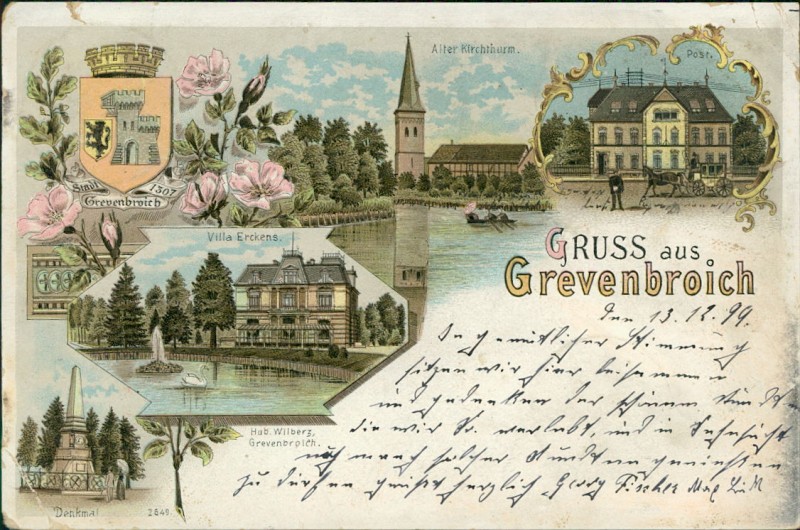 Alter Kirchthurm.
Post.
Stadt 1307
Grevenbroich
Villa Erckens.
GRUSS aus
Grevenbroich
den 13.12.99.
In gemütlicher Stimmung
sitzen wir hier beisammen
und gedenken der schönen Stunden
die wir verlebt, und in Sehnsucht
noch solche Stunden geniessen
zu dürfen grüsst herzlich Georg Fischer Max
Hub. Wilberz,
Grevenbroich.
Denkmal
2649.